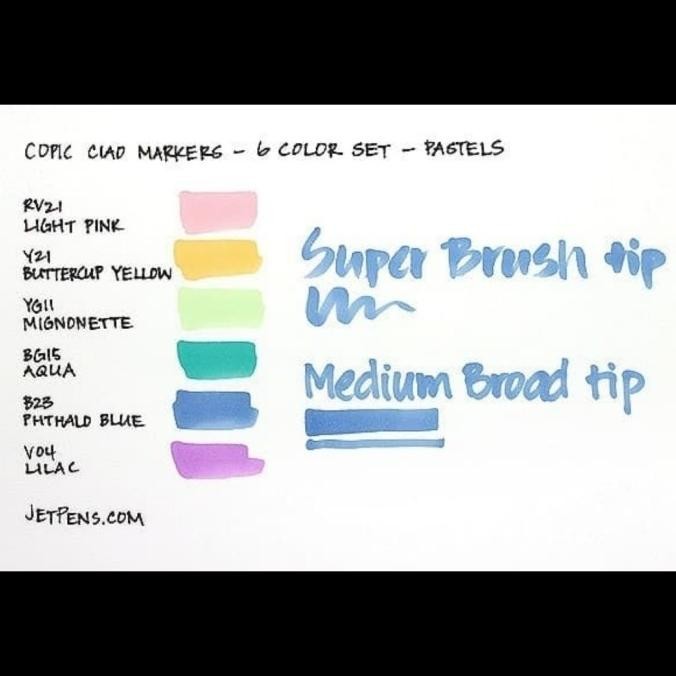 COPIC CIAO MARKERS - 6 COLOR SET - PASTELS
RV21
LIGHT PINK
Y21
BUTTERCUP YELLOW
YG11
MIGNONETTE
BG15
AQUA
B23
PHTHALO BLUE
V04
LILAC
JETPENS.COM
Super Brush tip
Medium Broad tip